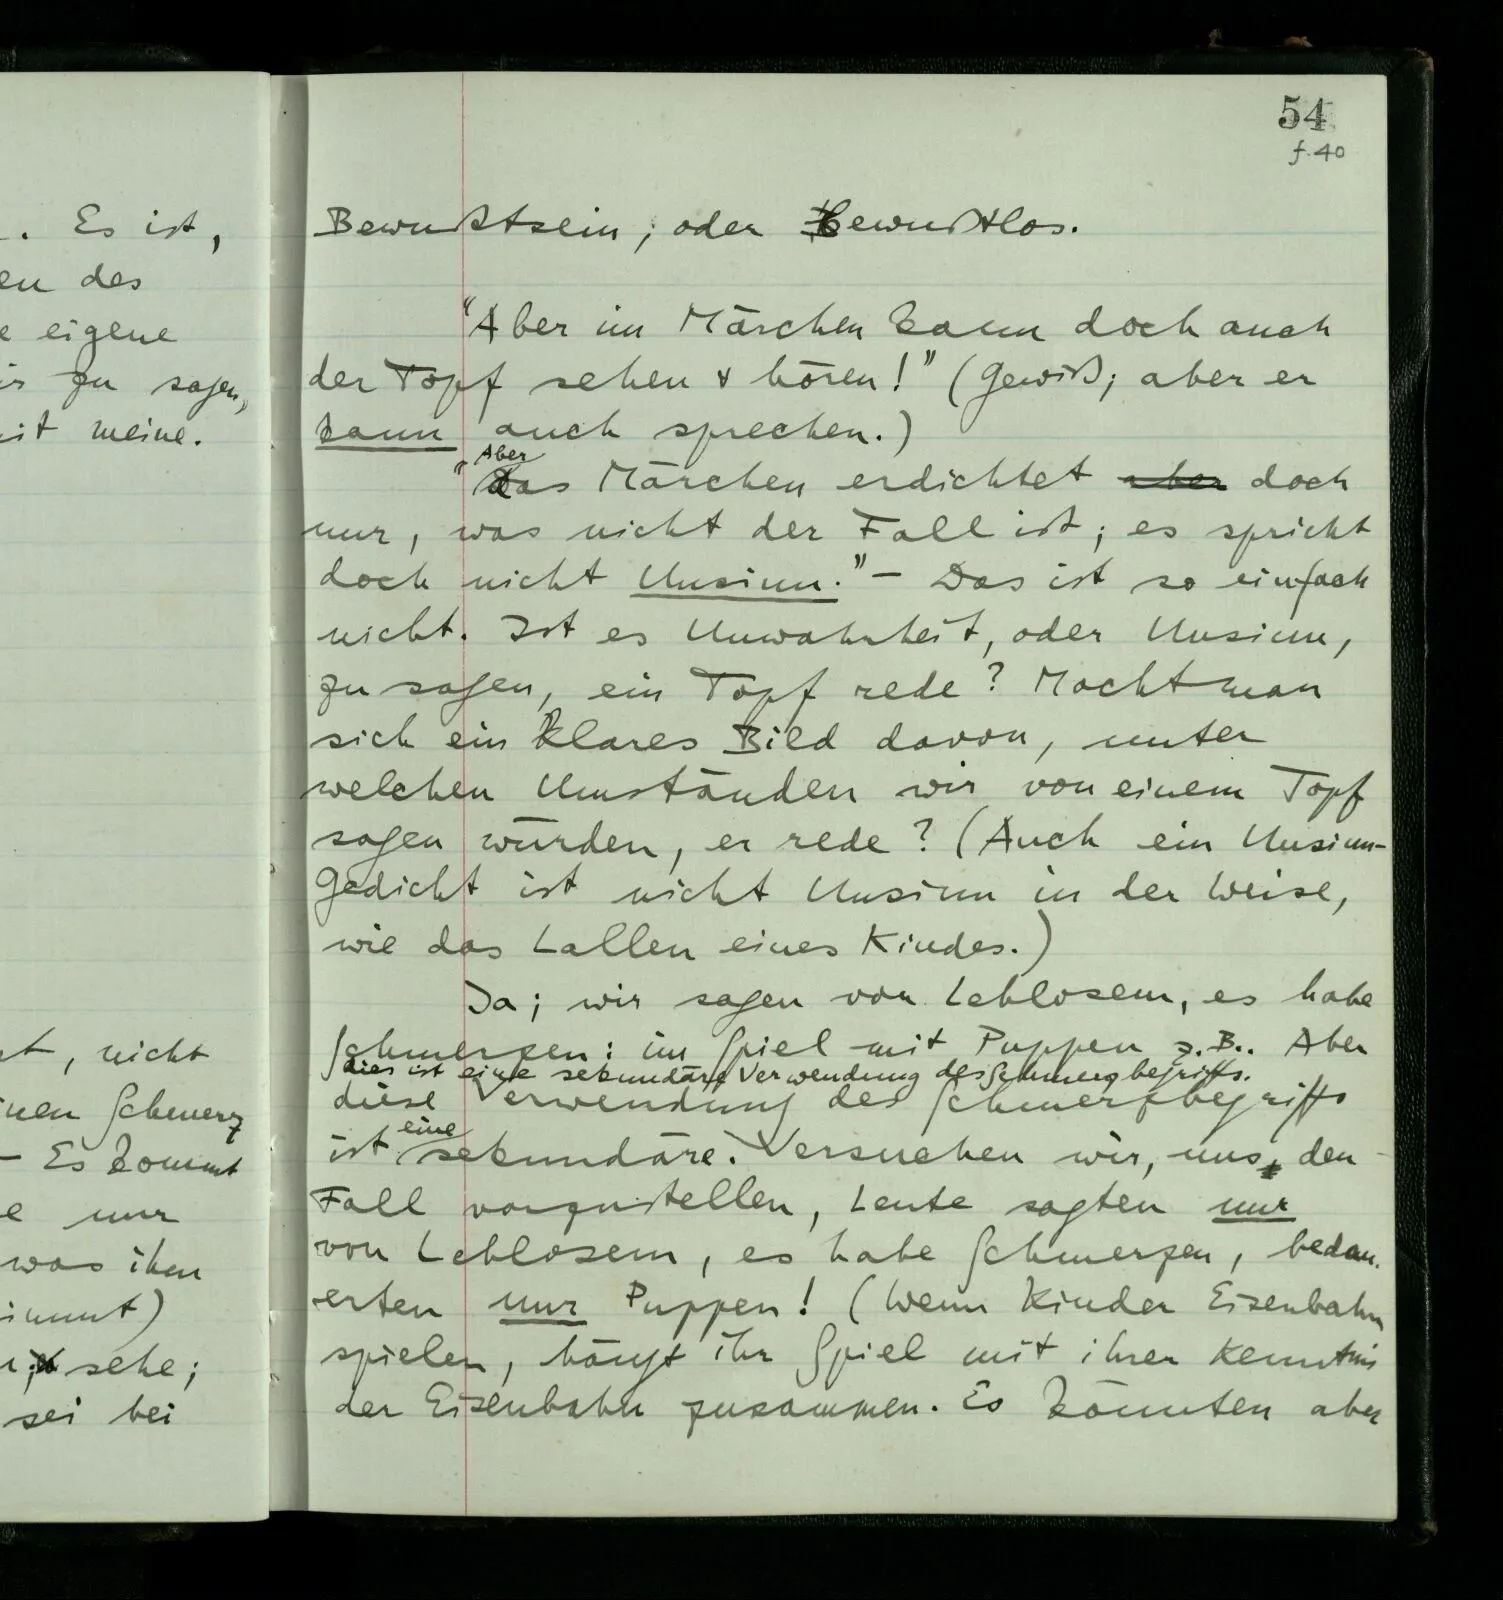 . Es ist,
en des
e eigene
ir zu sagen,
it meine.
t, nicht
inen Schmerz
– Es kommt
e nur
was ihm
immt)
sehe;
sei bei
54
f. 40
Bewußtsein; oder bewußtlos.
"Aber im Märchen kann doch auch
der Topf sehen & hören!" (Gewiß; aber er
kann auch sprechen.)
Aber
"das Märchen erdichtet aber doch
nur, was nicht der Fall ist; es spricht
doch nicht Unsinn." – Das ist so einfach
nicht. Ist es Unwahrheit, oder Unsinn,
zu sagen, ein Topf rede? Macht man
sich ein klares Bild davon, unter
welchen Umständen wir von einem Topf
sagen würden, er rede? (Auch ein Unsinn-
Gedicht ist nicht Unsinn in der Weise,
wie das Lallen eines Kindes.)
Ja; wir sagen von Leblosem, es habe
Schmerzen: im Spiel mit Puppen z.B.. Aber
dies ist eine sekundäre Verwendung des Schmerzbegriffs.
diese Verwendung des Schmerzbegriffs
eine
ist sekundäre. Versuchen wir, uns, den
Fall vorzustellen, Leute sagten nur
von Leblosem, es habe Schmerzen, bedau-
erten nur Puppen! (Wenn Kinder Eisenbahn
spielen, hängt ihr Spiel mit ihrer Kenntnis
der Eisenbahn zusammen. Es könnten aber